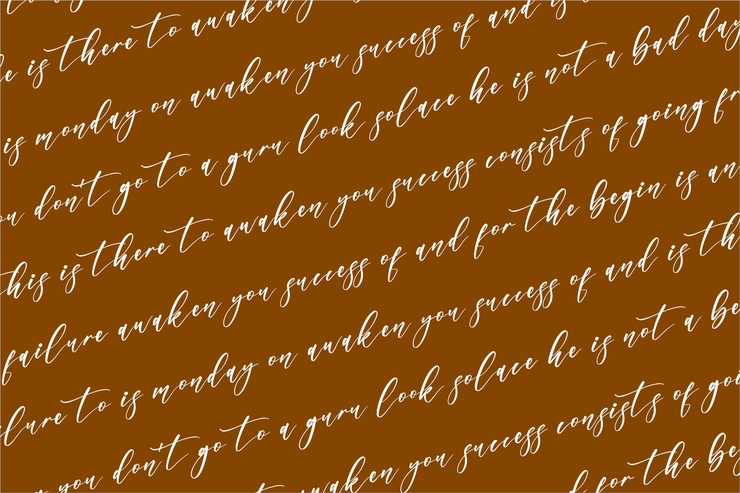 is there to awaken
is monday on awaken you success of and is
don't go to a guru look solace he is not a bad day
this is there to awaken you success consists of going
failure awaken you success of and for the begin is an
to is monday on awaken you success of and is
you don't go to a guru look solace he is not a
awaken you success consists of
for the